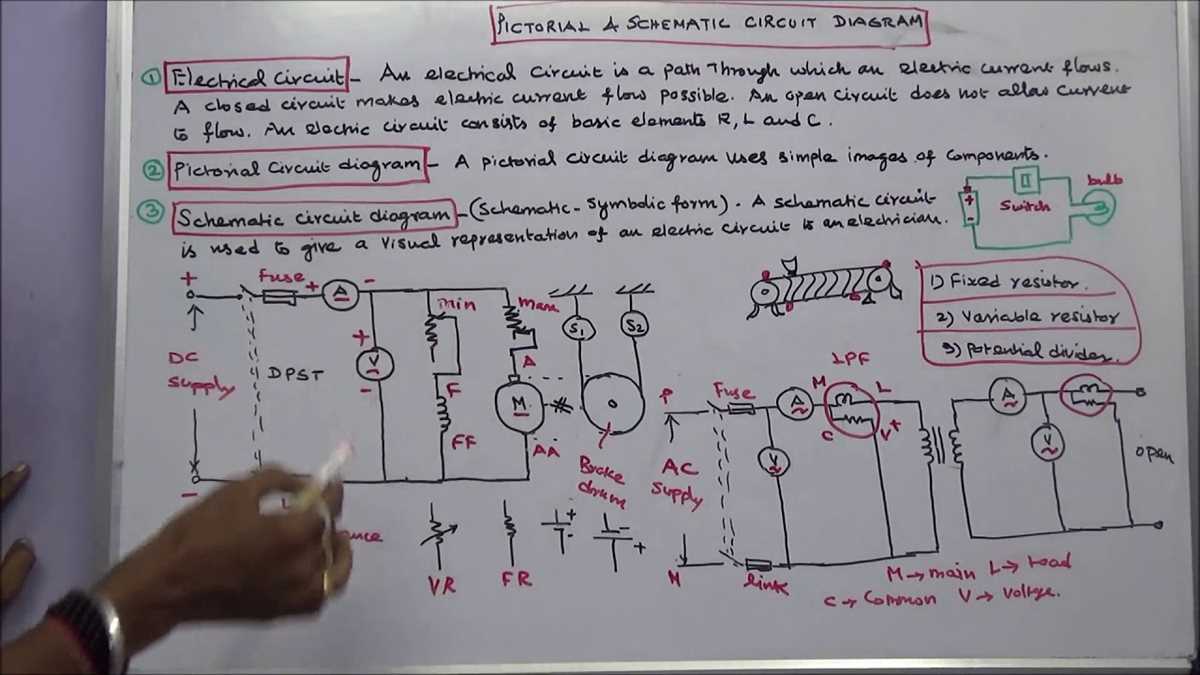 PICTORIAL & SCHEMATIC CIRCUIT DIAGRAM
① Electrical Circuit - An electrical circuit is a path through which an electric current flows.
A closed circuit makes electric current flow possible. An open circuit does not allow current
to flow. An electric circuit consists of basic elements R, L and C.
② Pictorial Circuit diagram - A pictorial circuit diagram uses simple images of components.
③ Schematic circuit diagram - (Schematic - Symbolic form). A schematic circuit
is used to give a visual representation of an electric circuit to an electrician.
Switch
bulb
+
-
1) Fixed resistor.
2) Variable resistor
3) Potential divider.
+
Fuse
+
A
-
min
max
S1
S2
DC
supply
DPST
+
V
-
F
FF
A
M
AA
Brake
drum
-
VR
FR
+
-
-
+
LPF
P
Fuse
A
M
L
C
V
+
AC
supply
V
N
link
A
V
open
M → main L → load
C → Common V → voltage.